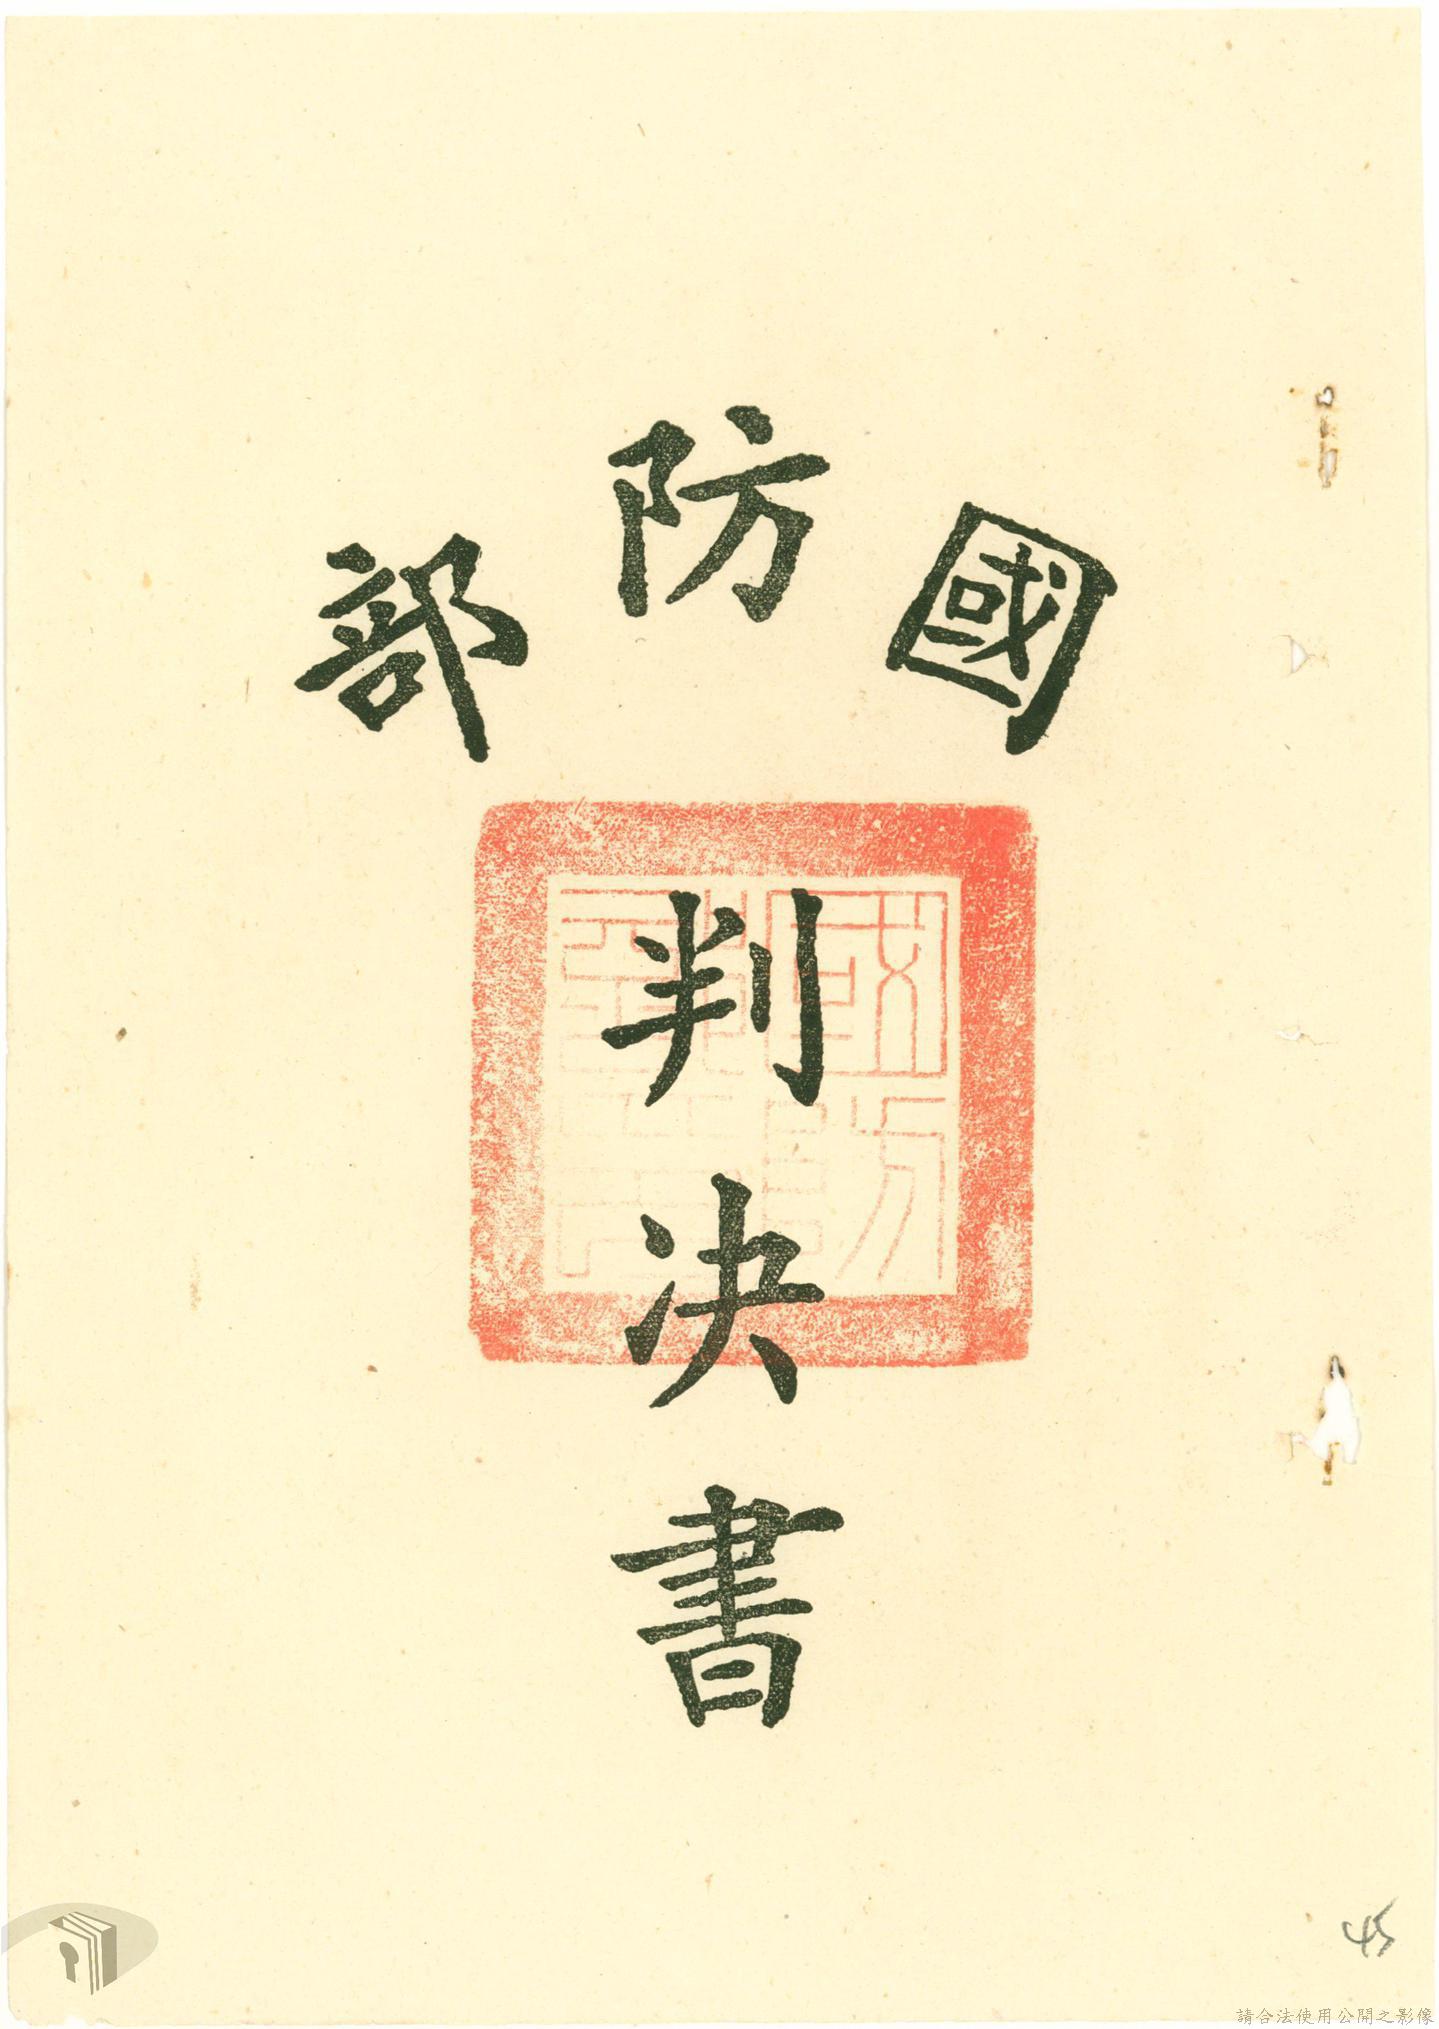 國防部
判決書
45
請合法使用公開之影像